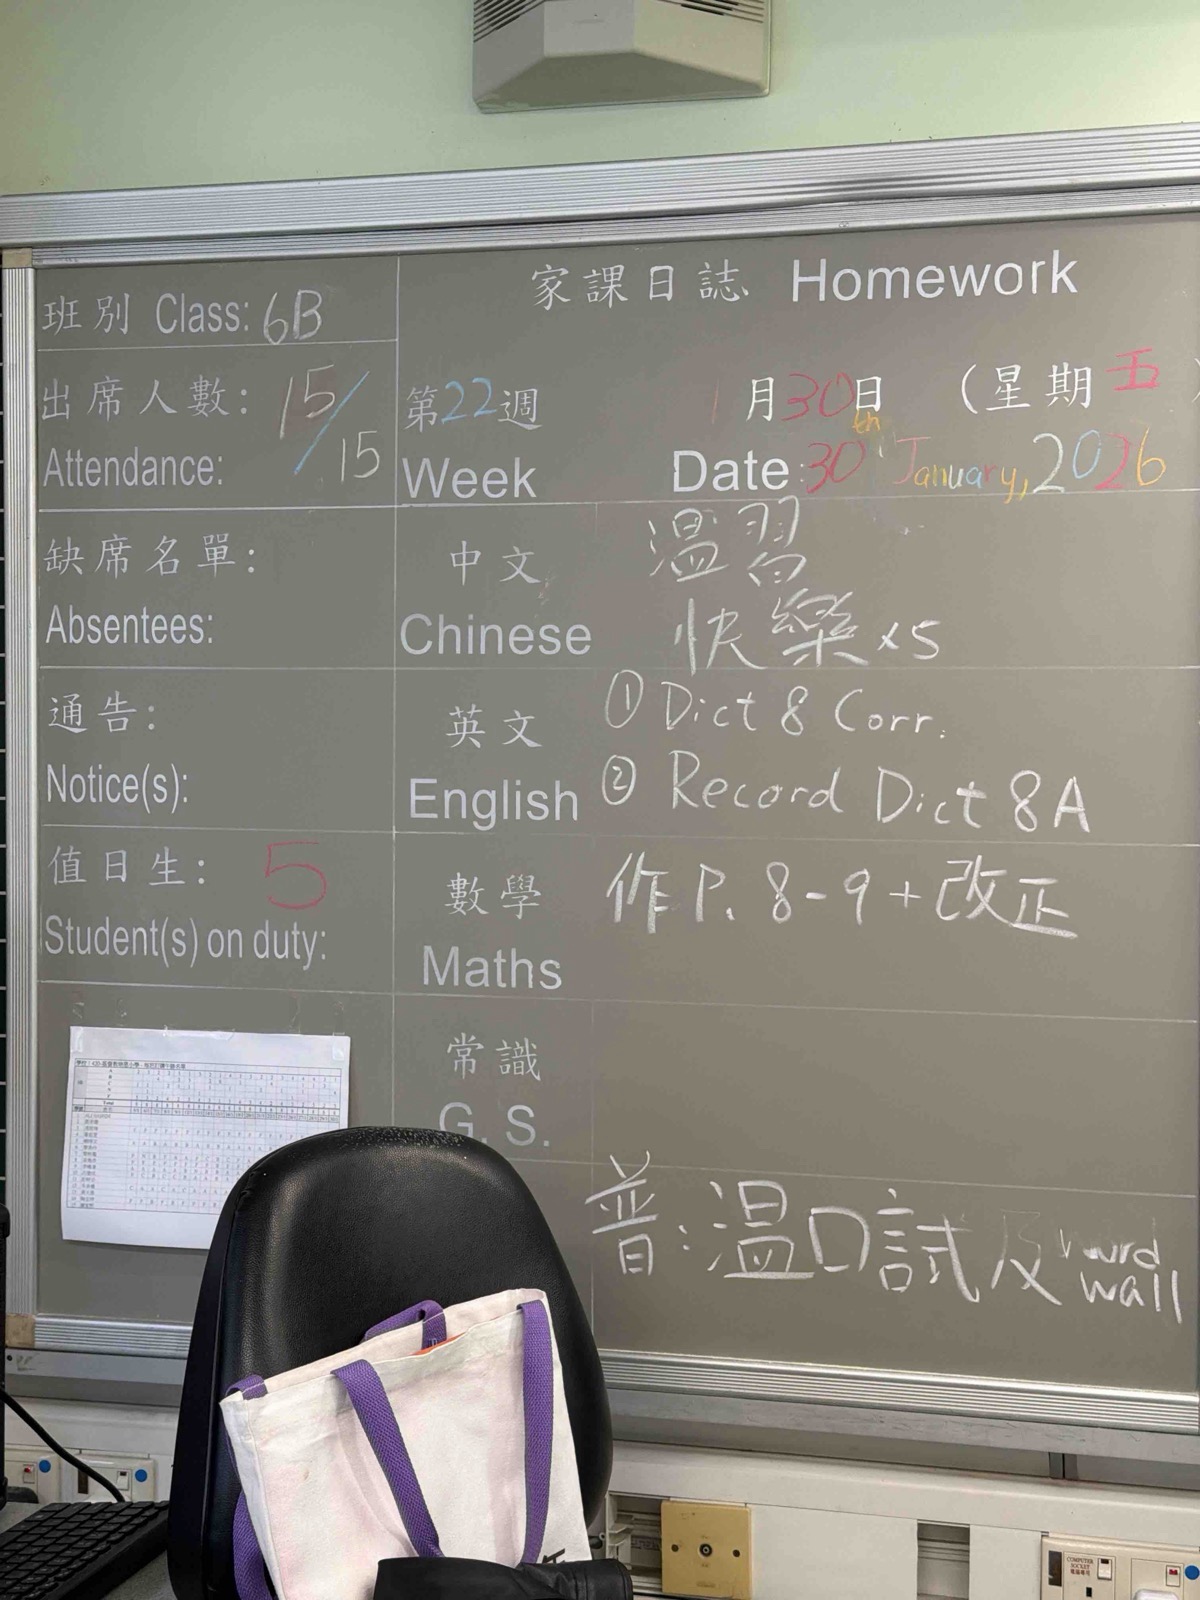 家課日誌 Homework
班別 Class: 6B
出席人數: 15/15
Attendance:
第22週 1月30日 (星期五
Week Date: 30th January, 2026
缺席名單:
Absentees:
通告:
Notice(s):
值日生: 5
Student(s) on duty:
中文 溫習
Chinese 快樂x5
英文 ① Dict 8 Corr.
English ② Record Dict 8A
數學 作P. 8-9 + 改正
Maths
常識
G. S.
普:溫口試及word
wall
COMPUTER
SOCKET